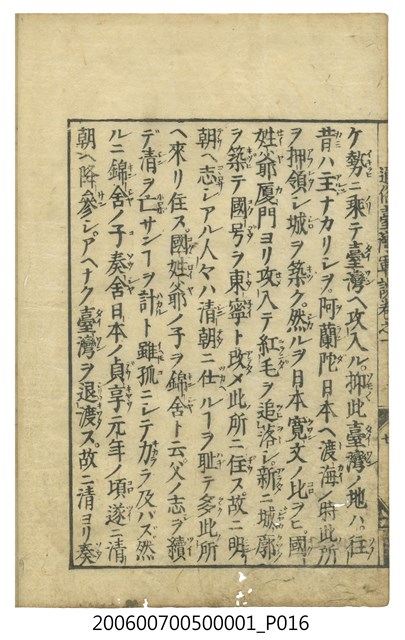 通俗臺灣軍談巻之一
ケ勢ニ乗テ臺灣ヘ攻入ル。抑此臺灣ノ地ハ。往
昔ハ主ナカリシヲ。阿蘭陀日本ヘ渡海ノ時此所
ヲ押領シ城ヲ築ク。然ルヲ日本寛文ノ比ヲヒ國
姓爺厦門ヨリ攻入テ紅毛ヲ追落シ。新ニ城廓
ヲ築テ國号ヲ東寧ト改メ此所ニ住ス。故ニ明
朝ヘ志シアル人々ハ清朝ニ仕ルヿヲ耻テ多此所
ヘ來リ住ス。國姓爺ノ子ヲ錦舎ト云。父ノ志ヲ續
デ清ヲ亡サンヿヲ計ト雖孤ニシテ力ヲ及バズ然
ルニ錦舎ノ子奏舎日本ノ貞享元年ノ頃遂ニ清
朝ヘ降參シ。アヘナク臺灣ヲ退渡ス。故ニ清ヨリ奏
200600700500001_P016